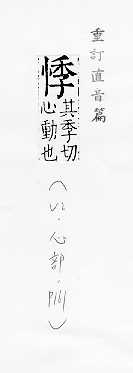 重訂直音篇
悸其季切
心動也
(V2.心部.P161)